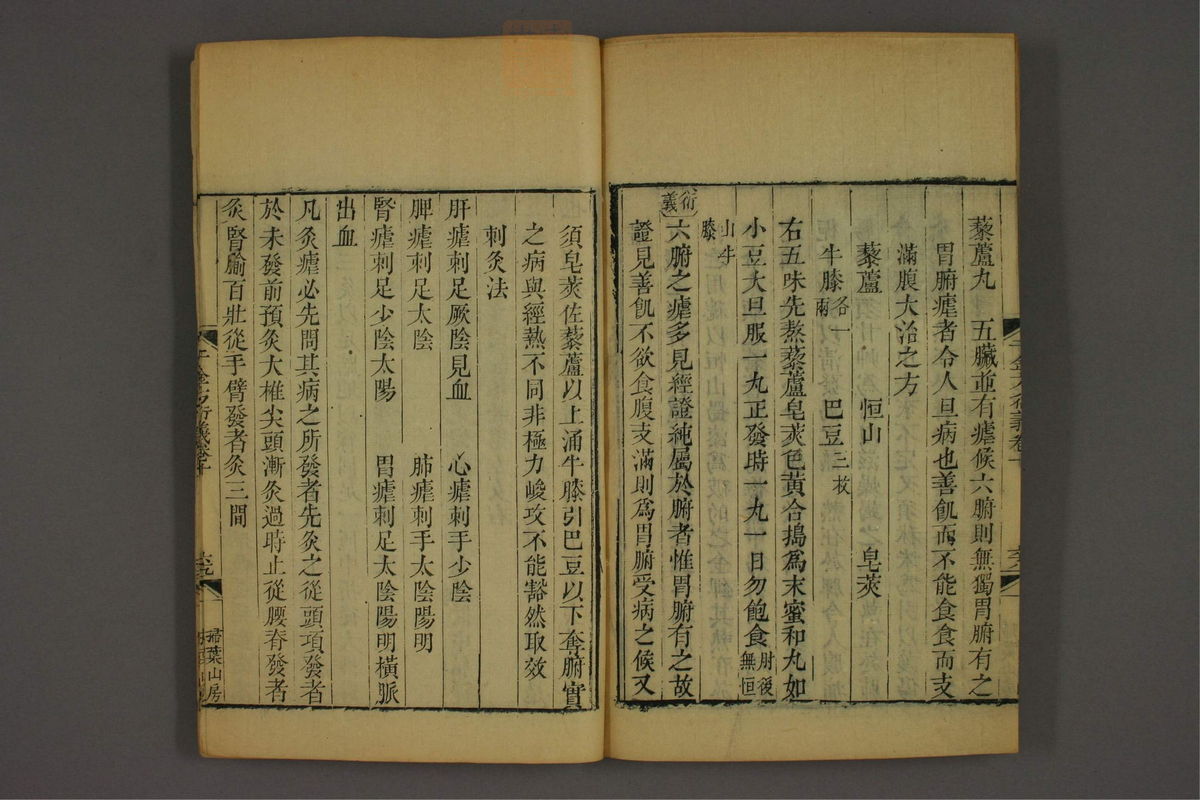 藜蘆丸　五臟並有瘧候六腑則無獨胃腑有之
胃腑瘧者令人旦病也善飢而不能食食而支
滿腹大治之方
藜蘆　恒山　皂莢
牛膝各一兩　巴豆三枚
右五味先熬藜蘆皂莢色黃合搗爲末蜜和丸如
小豆大旦服一丸正發時一丸一日勿飽食肘後無恒
山牛膝
衍義
六腑之瘧多見經證純屬於腑者惟胃腑有之故
證見善飢不欲食腹支滿則爲胃腑受病之候又
須皂莢佐藜蘆以上涌牛膝引巴豆以下奪腑實
之病與經熱不同非極力峻攻不能豁然取效
刺灸法
肝瘧刺足厥陰見血　心瘧刺手少陰
脾瘧刺足太陰　肺瘧刺手太陰陽明
腎瘧刺足少陰太陽　胃瘧刺足太陰陽明橫脈
出血
凡灸瘧必先問其病之所發者先灸之從頭項發者
於未發前預灸大椎尖頭漸灸過時止從腰脊發者
灸腎腧百壯從手臂發者灸三間
千金方衍義卷十
掃葉山房